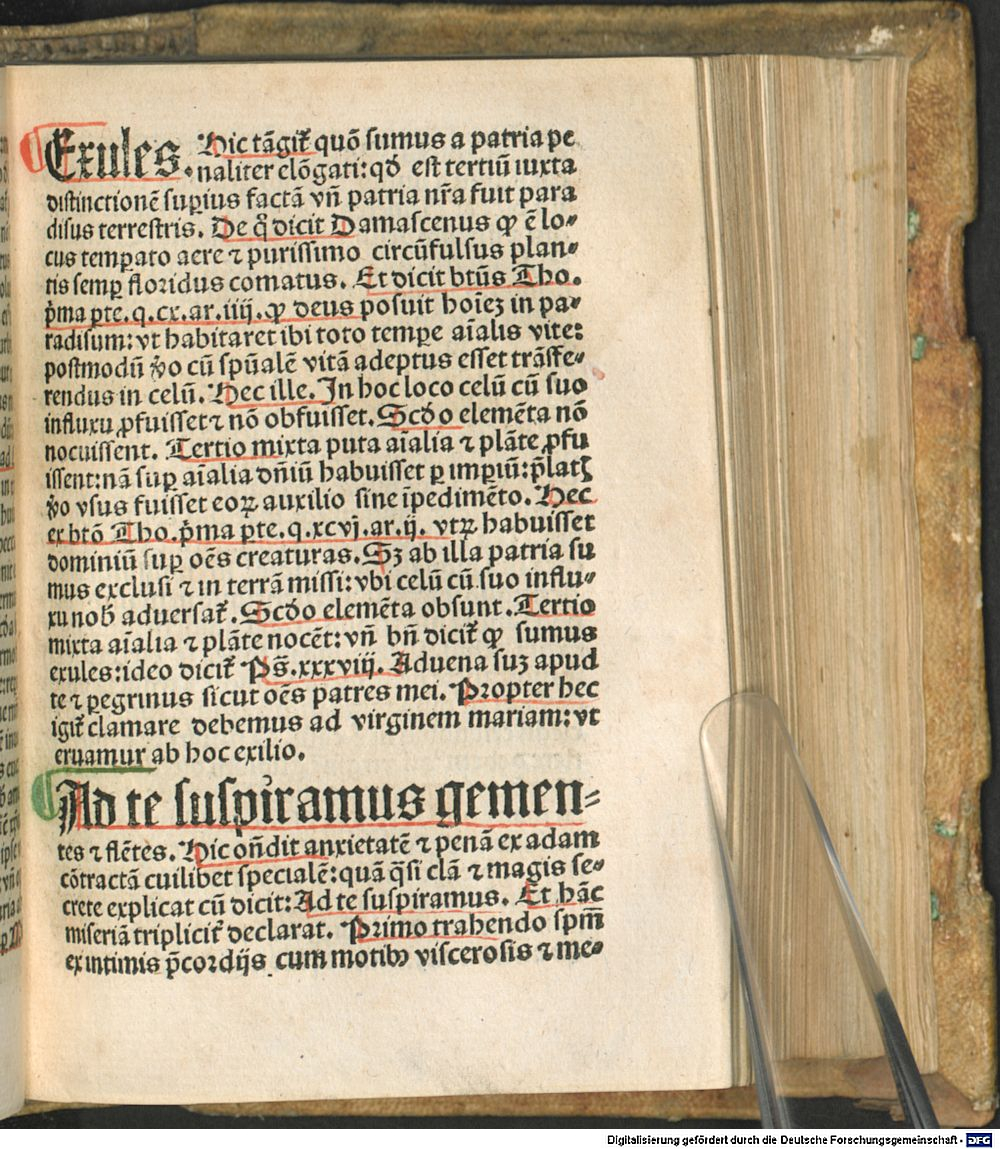 Exules. Hic tãgit᷑ quõ sumus a patria pe
naliter elõgati: qđ est tertiũ iuxta
distinctionẽ suꝑius factã vñ patria nr̃a fuit para
disus terrestris. De q̃ dicit Damascenus ꝙ ẽ lo⸗
cus temꝑato aere ⁊ purissimo circũfulsus plan⸗
tis semꝑ floridus comatus. Et dicit btũs Tho.
p̃ma ꝑte.q.cx.ar.iiij.ꝙ deus posuit hoĩeꝫ in pa⸗
radisum: vt habitaret ibi toto tempe aĩalis vite:
postmodũ ꝟo cũ spũalẽ vitã adeptus esset trãsfe⸗
rendus in celũ. Hec ille. In hoc loco celũ cũ suo
influxu ꝓfuisset ⁊ nõ obfuisset. Scđo elemẽta nõ
nocuissent. Tertio mixta puta aĩalia ⁊ plãte ꝓfu
issent: nã suꝑ aĩalia dñiũ habuisset ꝑ imꝑiũ: p̃latꝭ
ꝟo vsus fuisset eoꝝ auxilio sine ĩpedimẽto. Hec
ex btõ Tho.p̃ma ꝑte.q.xcvj.ar.ij. vtꝝ habuisset
dominiũ suꝑ oẽs creaturas. Sꝫ ab illa patria su
mus exclusi ⁊ in terrã missi: vbi celũ cũ suo influ⸗
xu nob̾ aduersat᷑. Scđo elemẽta obsunt. Tertio
mixta aĩalia ⁊ plãte nocẽt: vñ bñ dicit᷑ ꝙ sumus
exules: ideo dicit᷑ Ps̃.xxxviij. Aduena suꝫ apud
te ⁊ ꝑegrinus sicut oẽs patres mei. Propter hec
igit᷑ clamare debemus ad virginem mariam: vt
eruamur ab hoc exilio.
Ad te suspiramus gemen⸗
tes ⁊ flẽtes. Hic oñdit anxietatẽ ⁊ penã ex adam
cõtractã cuilibet specialẽ: quã q̃si clã ⁊ magis se⸗
crete explicat cũ dicit: Ad te suspiramus. Et hãc
miseriã triplicit᷑ declarat. Primo trahendo spm̃
ex intimis p̃cordijs cum motibꝫ viscerosis ⁊ me⸗
Digitalisierung gefördert durch die Deutsche Forschungsgemeinschaft - DFG